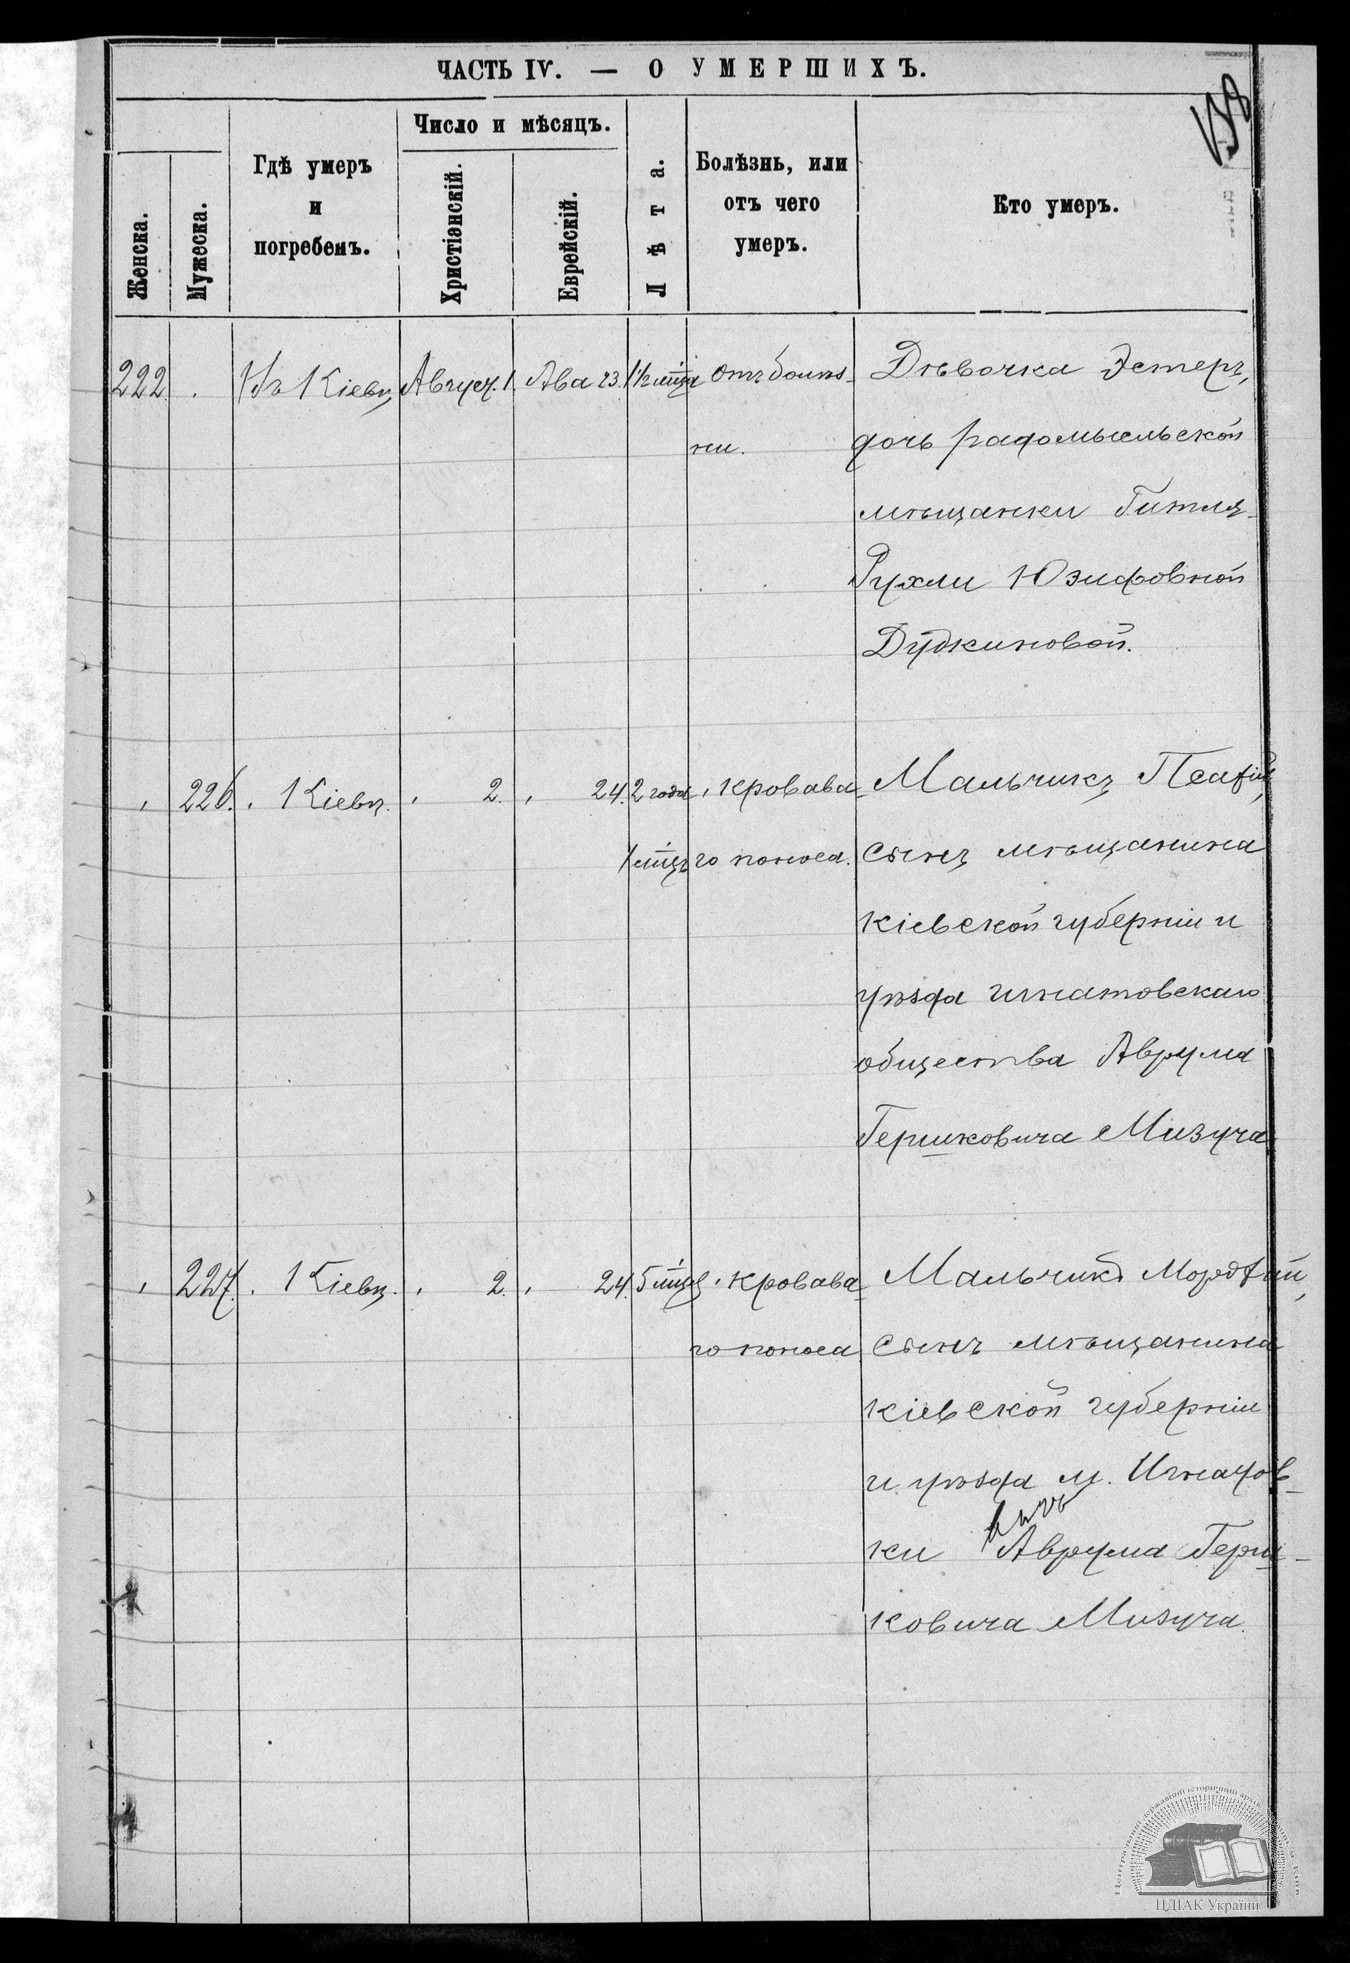 ЧАСТЬ IV. — О УМЕРШИХЪ.
Женска.
Мужеска.
Гдѣ умеръ
и
погребенъ.
Число и мѣсяцъ.
Христіэнскій.
Еврейскій.
Лѣта.
Болѣзнь, или
отъ чего
умеръ.
Кто умеръ.
222. Въ Кіевѣ Август. 1. Ава 23. 1½ мѣца Отъ болѣз- Дѣвочка Эстеръ,
ни. дочь радомысльской
мѣщанки Гитля-
Рухли Юзифовной
Дудкиновой.
226. Кіевѣ. 2. 24. 2 года кровава- Мальчикъ
1 мѣцъ го поноса. сынъ мѣщанина
кіевской губерніи и
уѣзда игнатовскаго
общества Аврума
Гершковича Мизуча
227. Кіевѣ. 2. 24. 5 мѣц. кровава- Мальчикъ
го поноса сынъ мѣщанина
кіевской губерніи
и уѣзда м. Игнатов-
ки Аврума Герш-
ковича Мизуча.
ЦДІАК України